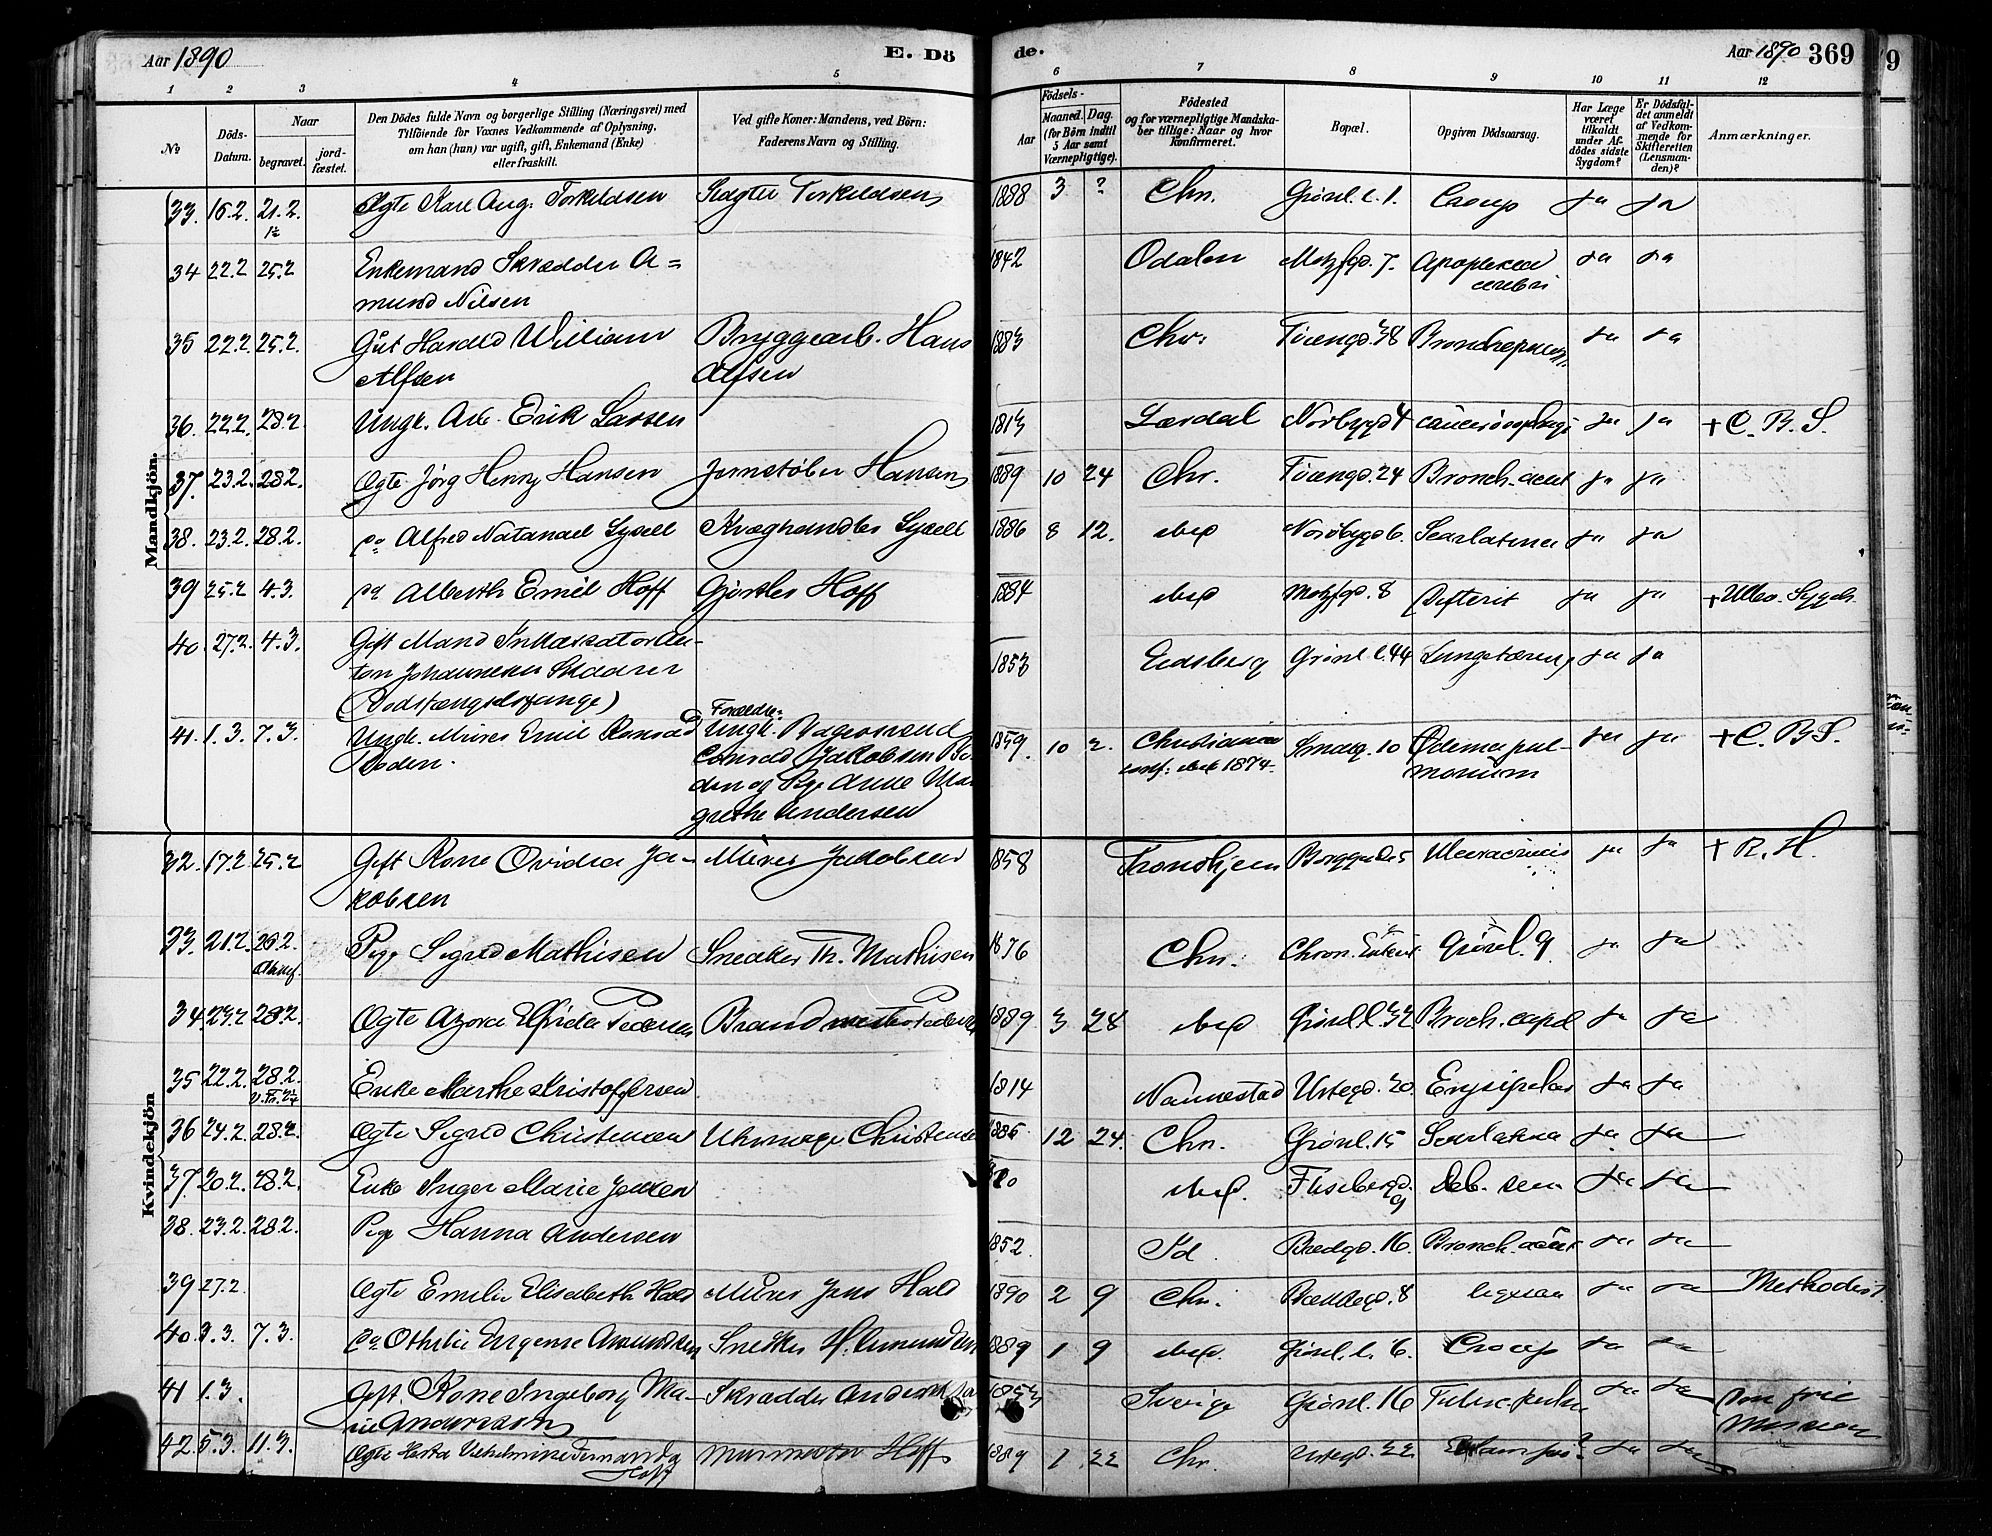 Aar 1890 E. Dö de. Aar 1890 369
1 2 3 4 5 6 7 8 9 10 11 12
No
Döds-Datum.
Naar
begravet.
jord-fæstet.
Den Dödes fulde Navn og borgerlige Stilling (Næringsvei) med
Tilföiende for Voxnes Vedkommende af Oplysning,
om han (hun) var ugift, gift, Enkemand (Enke)
eller fraskilt.
Ved gifte Koner: Mandens, ved Börn:
Faderens Navn og Stilling.
Födsels-
Aar
Maaned. Dag
(for Börn indtil
5 Aar samt
Værnepligtige).
Födested
og for værnepligtige Mandska-
ber tillige: Naar og hvor
konfirmeret.
Bopæl.
Opgiven Dödsaarsag.
Har Læge
været
tilkaldt
under Af-
dödes sidste
Sygdom?
Er Dödsfal-
det anmeldt
af Vedkom-
mende for
Skifteretten
(Lensman-
den)?
Anmærkninger.
Mandkjön.
33. 16.2. 21.2. Ægte Karl Aug. Torkildsen Torkildsen 1888 3 ? Chr. Grönl. l. 1. Croup ja ja
34 22.2 25.2 Enkemand Skrædder A=
mund Nilsen 1842 Odalen Motzfgd. 7. Apoplexia
cerebri ja ja
35 22.2. 25.2. Gut Harald William
Alfsen Bryggearb. Hans
Alfsen 1883 Chr. Töiengd. 38 ja ja
36. 22.2. 28.2 Ungk. Arb. Erik Larsen 1813 Lærdal Norbygd 4 ja ja + C. B. S.
37. 23.2. 28.2. Ægte Jörg Henry Hansen Jernstöber Hansen 1889 10 24 Chr. Töiengd. 24 Bronch. acut ja ja
38. 23.2. 28.2. do Alfred Natanael Syvell Kvæghandler Syvell 1886 8 12. ibid Norbygd 6. Scarlatina ja ja
39 25.2 4.3. do Alberth Emil Hoff Gjörtler Hoff 1884 ibid Motzfgd. 8 Difterit ja ja + Ullev. Sygeh.
40. 27.2. 4.3. Gift Mand Inkassator An-
ton Johannesen Skaarer
(Bodsfængselsfange) 1853 Eidsberg Grönl. l. 44 Lungetæring ja ja
41. 1.3. 7.3. Ungk. Murer Emil Konrad
Boden. Forældre:
Ungk. Bagersvend
Conrad Jakobsen Bo-
den og Pige Anne Mar
grethe Andersen 1859. 10 2. Christiania
conf: ibid 1874. Smalg. 10 Ødema pul-
monum ja ja + C. B. S.
Kvindekjön
32. 17.2 25.2 Gift Kone Ovidia Ja-
kobsen Murer Jakobsen 1858 Trondhjem Borggd 25 ja ja + R. H.
33. 21.2. 26.2. Pige Sigrid Mathisen Snedker Th. Mathisen 1876 Chr. Chron. Enterit Grönl. 9 ja ja
34 23.2 28.2. Ægte Azora Elfrida Pedersen Brandmester Pedersen 1889 3 28 ibid Grönl. l. 32 Broch. capil ja ja
35 22.2. 28.2. Enke Marthe Kristoffersen 1814 Nannestad Urtegd. 20. Erysipelas ja ja
36 24.2. 28.2. Ægte Sigrid Christensen Uhrmager Christensen 1886 12 24. Chr. Grönl. 15 Scarlatina ja ja
37 20.2. 28.2. Enke Inger Marie Jensen ibid. Deb. sen ja ja
38. 23.2. 28.2. Pige Hanna Andersen 1852. Id. Bredgd. 16. Bronch. acut ja ja
39 27.2 Ægte Emilie Elisabeth Hald Murer Jens Hald 1890 2 9 Chr. 8 ja ja Methodist.
40. 3.3. 7.3. do Othilie Eugenie Amundsen Snedker H. Amundsen 1889 1 9 ibid. Grönl. l. 6. Croup ja ja
41 1.3. Gift. Kone Ingeborg Ma-
rie Andersson Skrædder 1853 Sverige Grönl. 16 ja ja Den frie
Mission
42. 5.3. 11.3. Ægte Herta Vilhelmine Fernanda
Hoff Murmester Hoff 1889 1 22 Chr. Urtegd. 22 ja ja